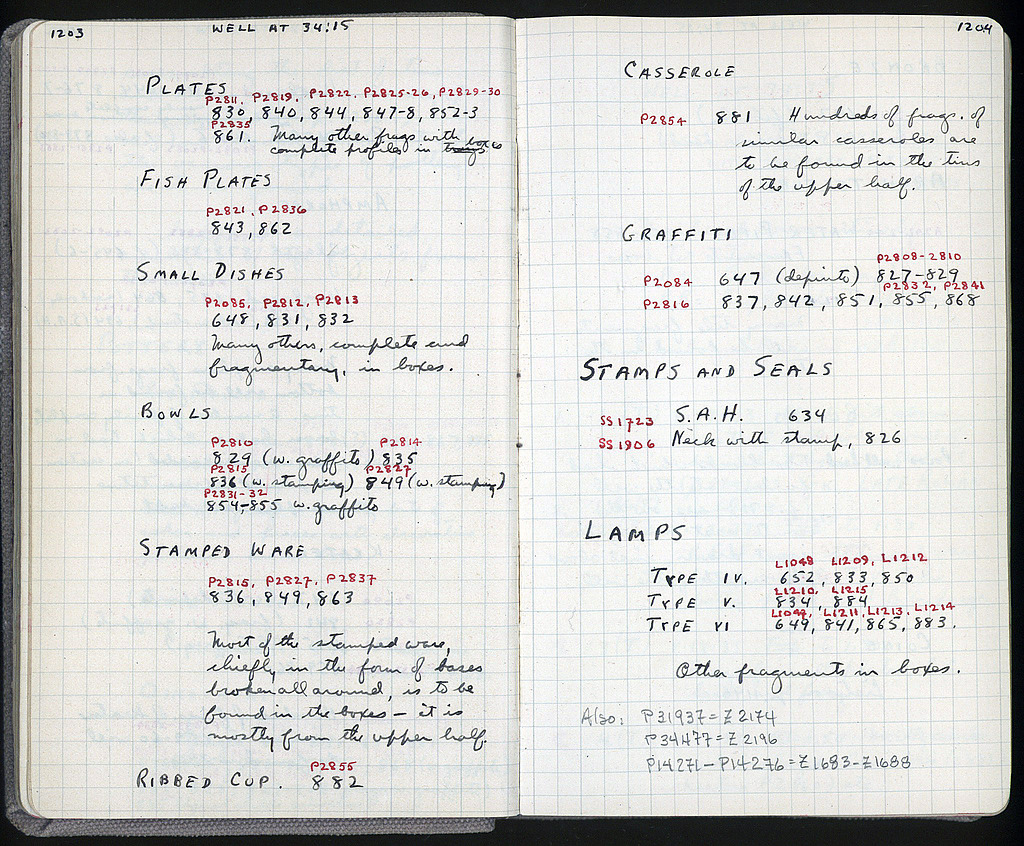 1203
WELL AT 34:15
PLATES
P2811, P2819, P2822, P2825-26, P2829-30
830, 840, 844, 847-8, 852-3
P2835
861. Many other frags with
complete profiles in boxes
FISH PLATES
P2821, P2836
843, 862
SMALL DISHES
P2085, P2812, P2813
648, 831, 832
Many others, complete and
fragmentary, in boxes.
BOWLS
P2810 P2814
829 (w. graffito) 835
P2815 P2827
836 (w. stamping) 849 (w. stamping)
P2831-32
854-855 w. graffito
STAMPED WARE
P2815, P2827, P2837
836, 849, 863
Most of the stamped ware,
chiefly in the form of bases
broken all around, is to be
found in the boxes – it is
mostly from the upper half.
P2855
RIBBED CUP. 882
1204
CASSEROLE
P2854 881 Hundreds of frags. of
similar casseroles are
to be found in the tins
of the upper half.
GRAFFITI
P2808-2810
P2084 647 (depinto) 827-829
P2832, P2841
P2816 837, 842, 851, 855, 868
STAMPS AND SEALS
SS1723 S.A.H. 634
SS1906 Neck with stamp, 826
LAMPS
L1048 L1209, L1212
TYPE IV. 652, 833, 850
L1210, L1215
TYPE V. 834, 884
L1049, L1211, L1213, L1214
TYPE VI 649, 841, 865, 883.
Other fragments in boxes.
Also: P31937 = Z2174
P34477 = Z2196
P14271-P14276 = Z1683-Z1688